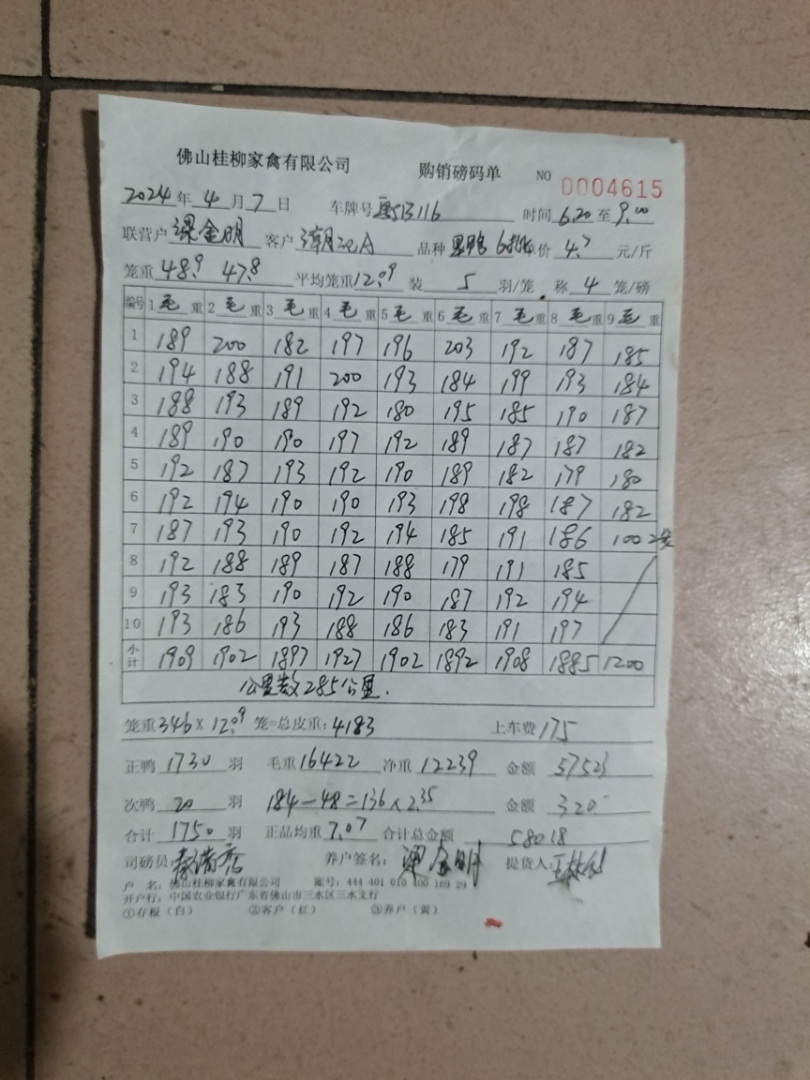 佛山桂柳家禽有限公司 购销磅码单 NO 0004615
2024年 4月 7日 车牌号 116 时间 6.20 至 9.00
联营户 金明 客户 品种 价 4.7 元/斤
笼重 48.9 47.8 平均笼重 12.09 装 5 羽/笼 称 4 笼/磅
编号 1毛重 2毛重 3毛重 4毛重 5毛重 6毛重 7毛重 8毛重 9毛重
1 189 200 182 197 196 203 192 187 185
2 194 188 191 200 193 184 199 193 184
3 188 193 189 192 180 195 185 190 187
4 189 190 190 197 192 189 187 187 182
5 192 187 193 192 190 189 182 179 180
6 192 194 190 190 193 198 198 187 182
7 187 193 190 192 194 185 191 186 100 2笼
8 192 188 189 187 188 179 191 185
9 193 183 190 192 190 187 192 194
10 193 186 193 188 186 183 191 197
小计 1909 1902 1897 1927 1902 1892 1908 1885 1200
公里数285公里.
笼重 346 X 12.09 笼=总皮重: 4183 上车费 175
正鸭 1730 羽 毛重 16422 净重 12239 金额 57523
次鸭 20 羽 184-48=136 X 2.35 金额 320
合计 1750 羽 正品均重 7.07 合计总金额 58018
司磅员: 养户签名: 提货人:
户 名: 佛山桂柳家禽有限公司 账号: 444 401 010 400 189 29
开户行: 中国农业银行广东省佛山市三水区三水支行
①存根(白) ②客户(红) ③养户(黄)